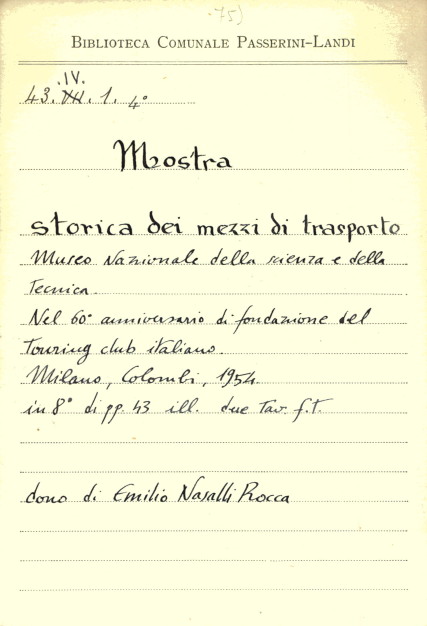 75)
BIBLIOTECA COMUNALE PASSERINI-LANDI
IV.
43. VII. 1. 4°
Mostra
storica dei mezzi di trasporto
Museo Nazionale della scienza e della
Tecnica.
Nel 60° anniversario di fondazione del
Touring club italiano.
Milano, Colombi, 1954.
in 8° di pp. 43 ill. due Tav. f.T.
dono di Emilio Nasalli Rocca